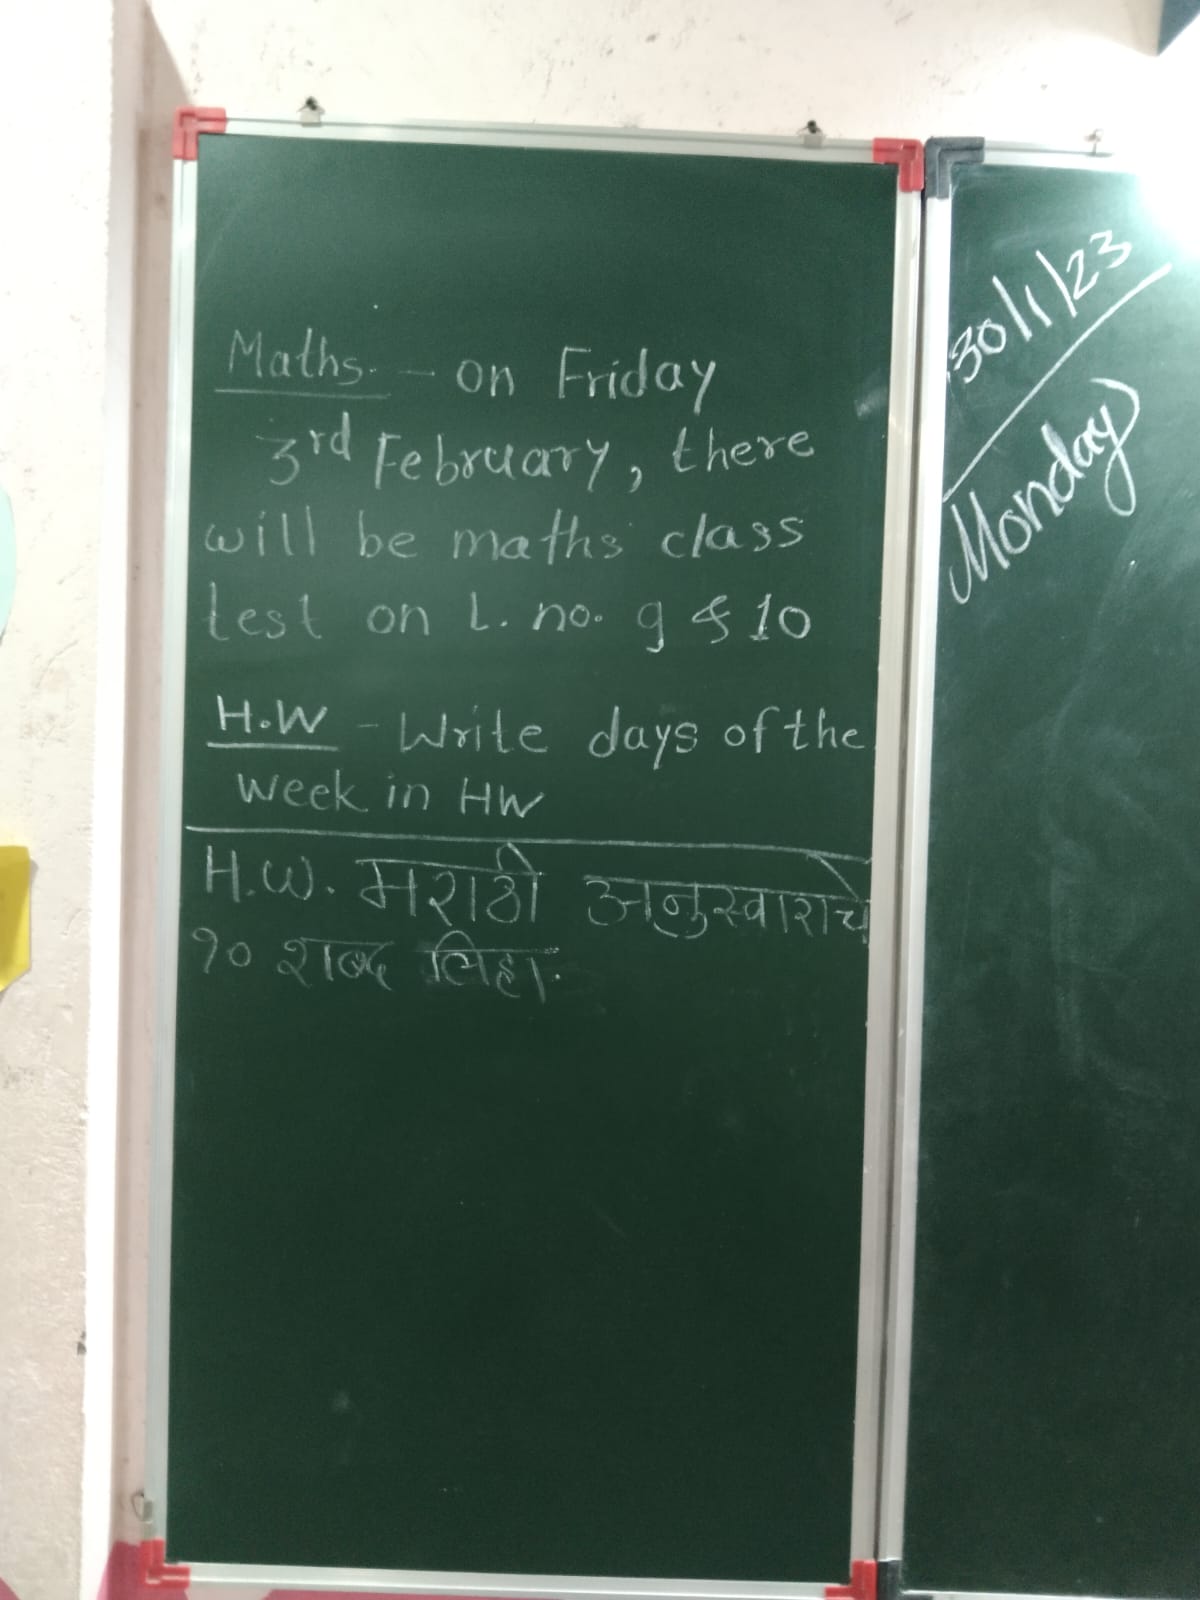 Maths. - on Friday
3rd February, there
will be maths class
test on L. no. 9 & 10
H.W - Write days of the
week in HW
H.W. मराठी अनुस्वाराचे
१० शब्द लिहा.
30/1/23
Monday